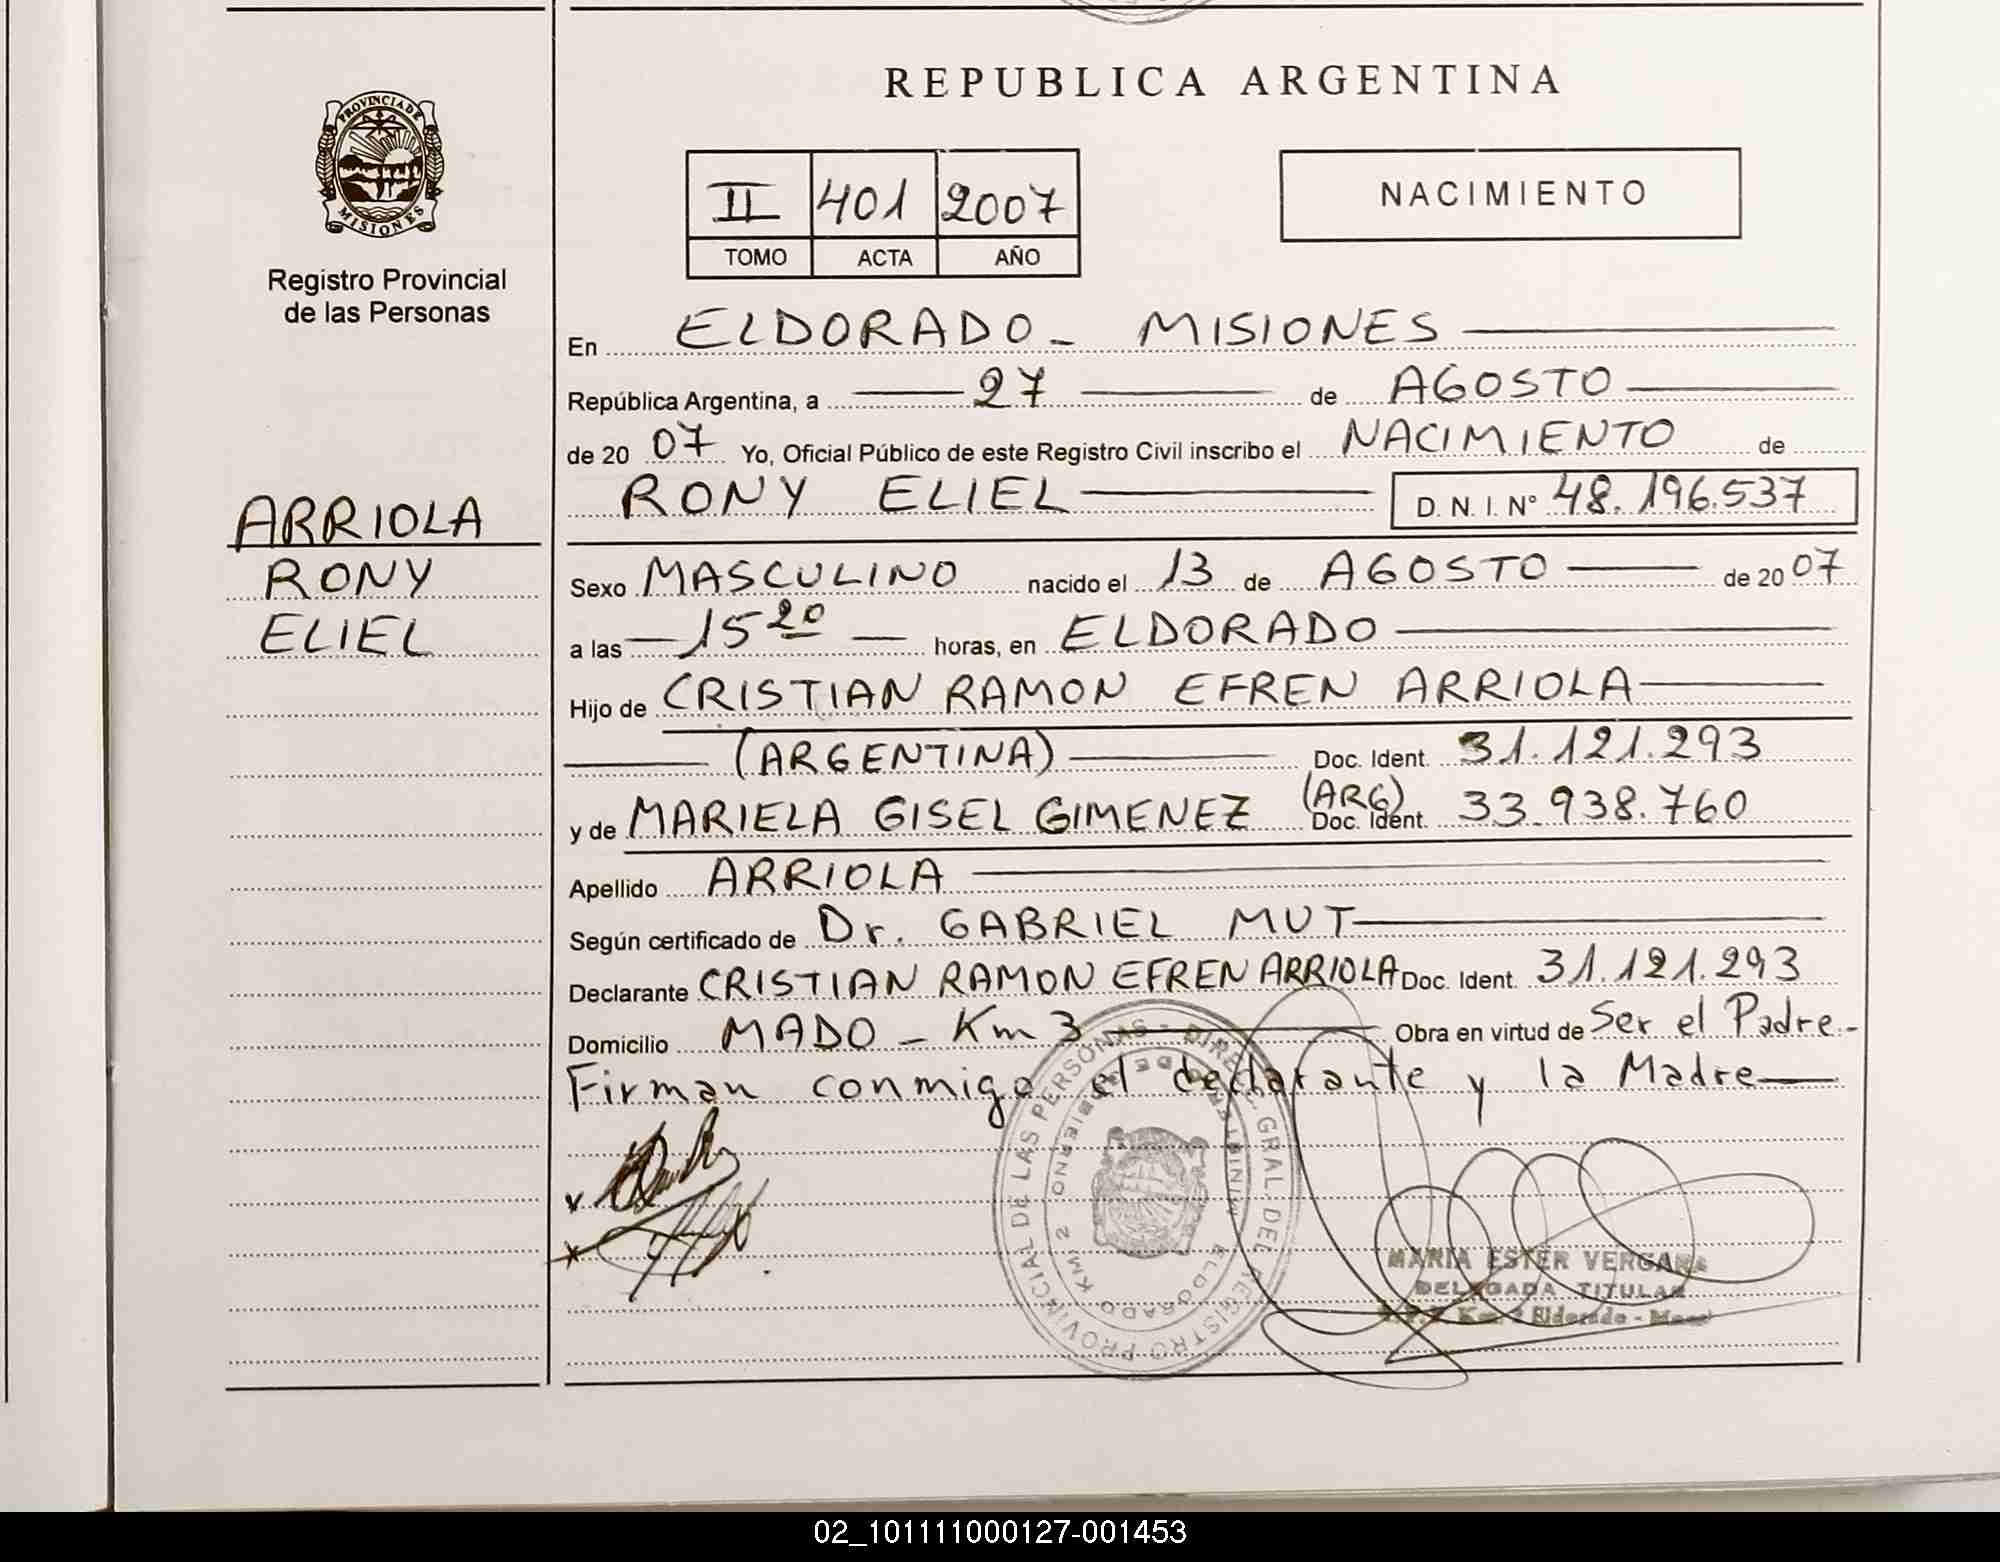 REPUBLICA ARGENTINA
PROVINCIA DE MISIONES
Registro Provincial
de las Personas
II 401 2007
TOMO ACTA AÑO
NACIMIENTO
En ELDORADO - MISIONES
República Argentina, a 27 de AGOSTO
de 20 07 Yo, Oficial Público de este Registro Civil inscribo el NACIMIENTO de
RONY ELIEL D. N. I. Nº 48.196.537
ARRIOLA
RONY
ELIEL
Sexo MASCULINO nacido el 13 de AGOSTO de 20 07
a las 15 20 horas, en ELDORADO
Hijo de CRISTIAN RAMON EFREN ARRIOLA
(ARGENTINA) Doc. Ident. 31.121.293
y de MARIELA GISEL GIMENEZ (ARG) Doc. Ident. 33.938.760
Apellido ARRIOLA
Según certificado de Dr. GABRIEL MUT
Declarante CRISTIAN RAMON EFREN ARRIOLA Doc. Ident. 31.121.293
Domicilio MADO - Km 3 Obra en virtud de Ser el Padre.-
Firman conmigo el declarante y la Madre
DIREC. GRAL. DEL REGISTRO PROVINCIAL DE LAS PERSONAS
MINISTERIO DE GOBIERNO
ELDORADO KM 2
MARIA ESTER VERGARA
DELEGADA TITULAR
Eldorado
02_101111000127-001453